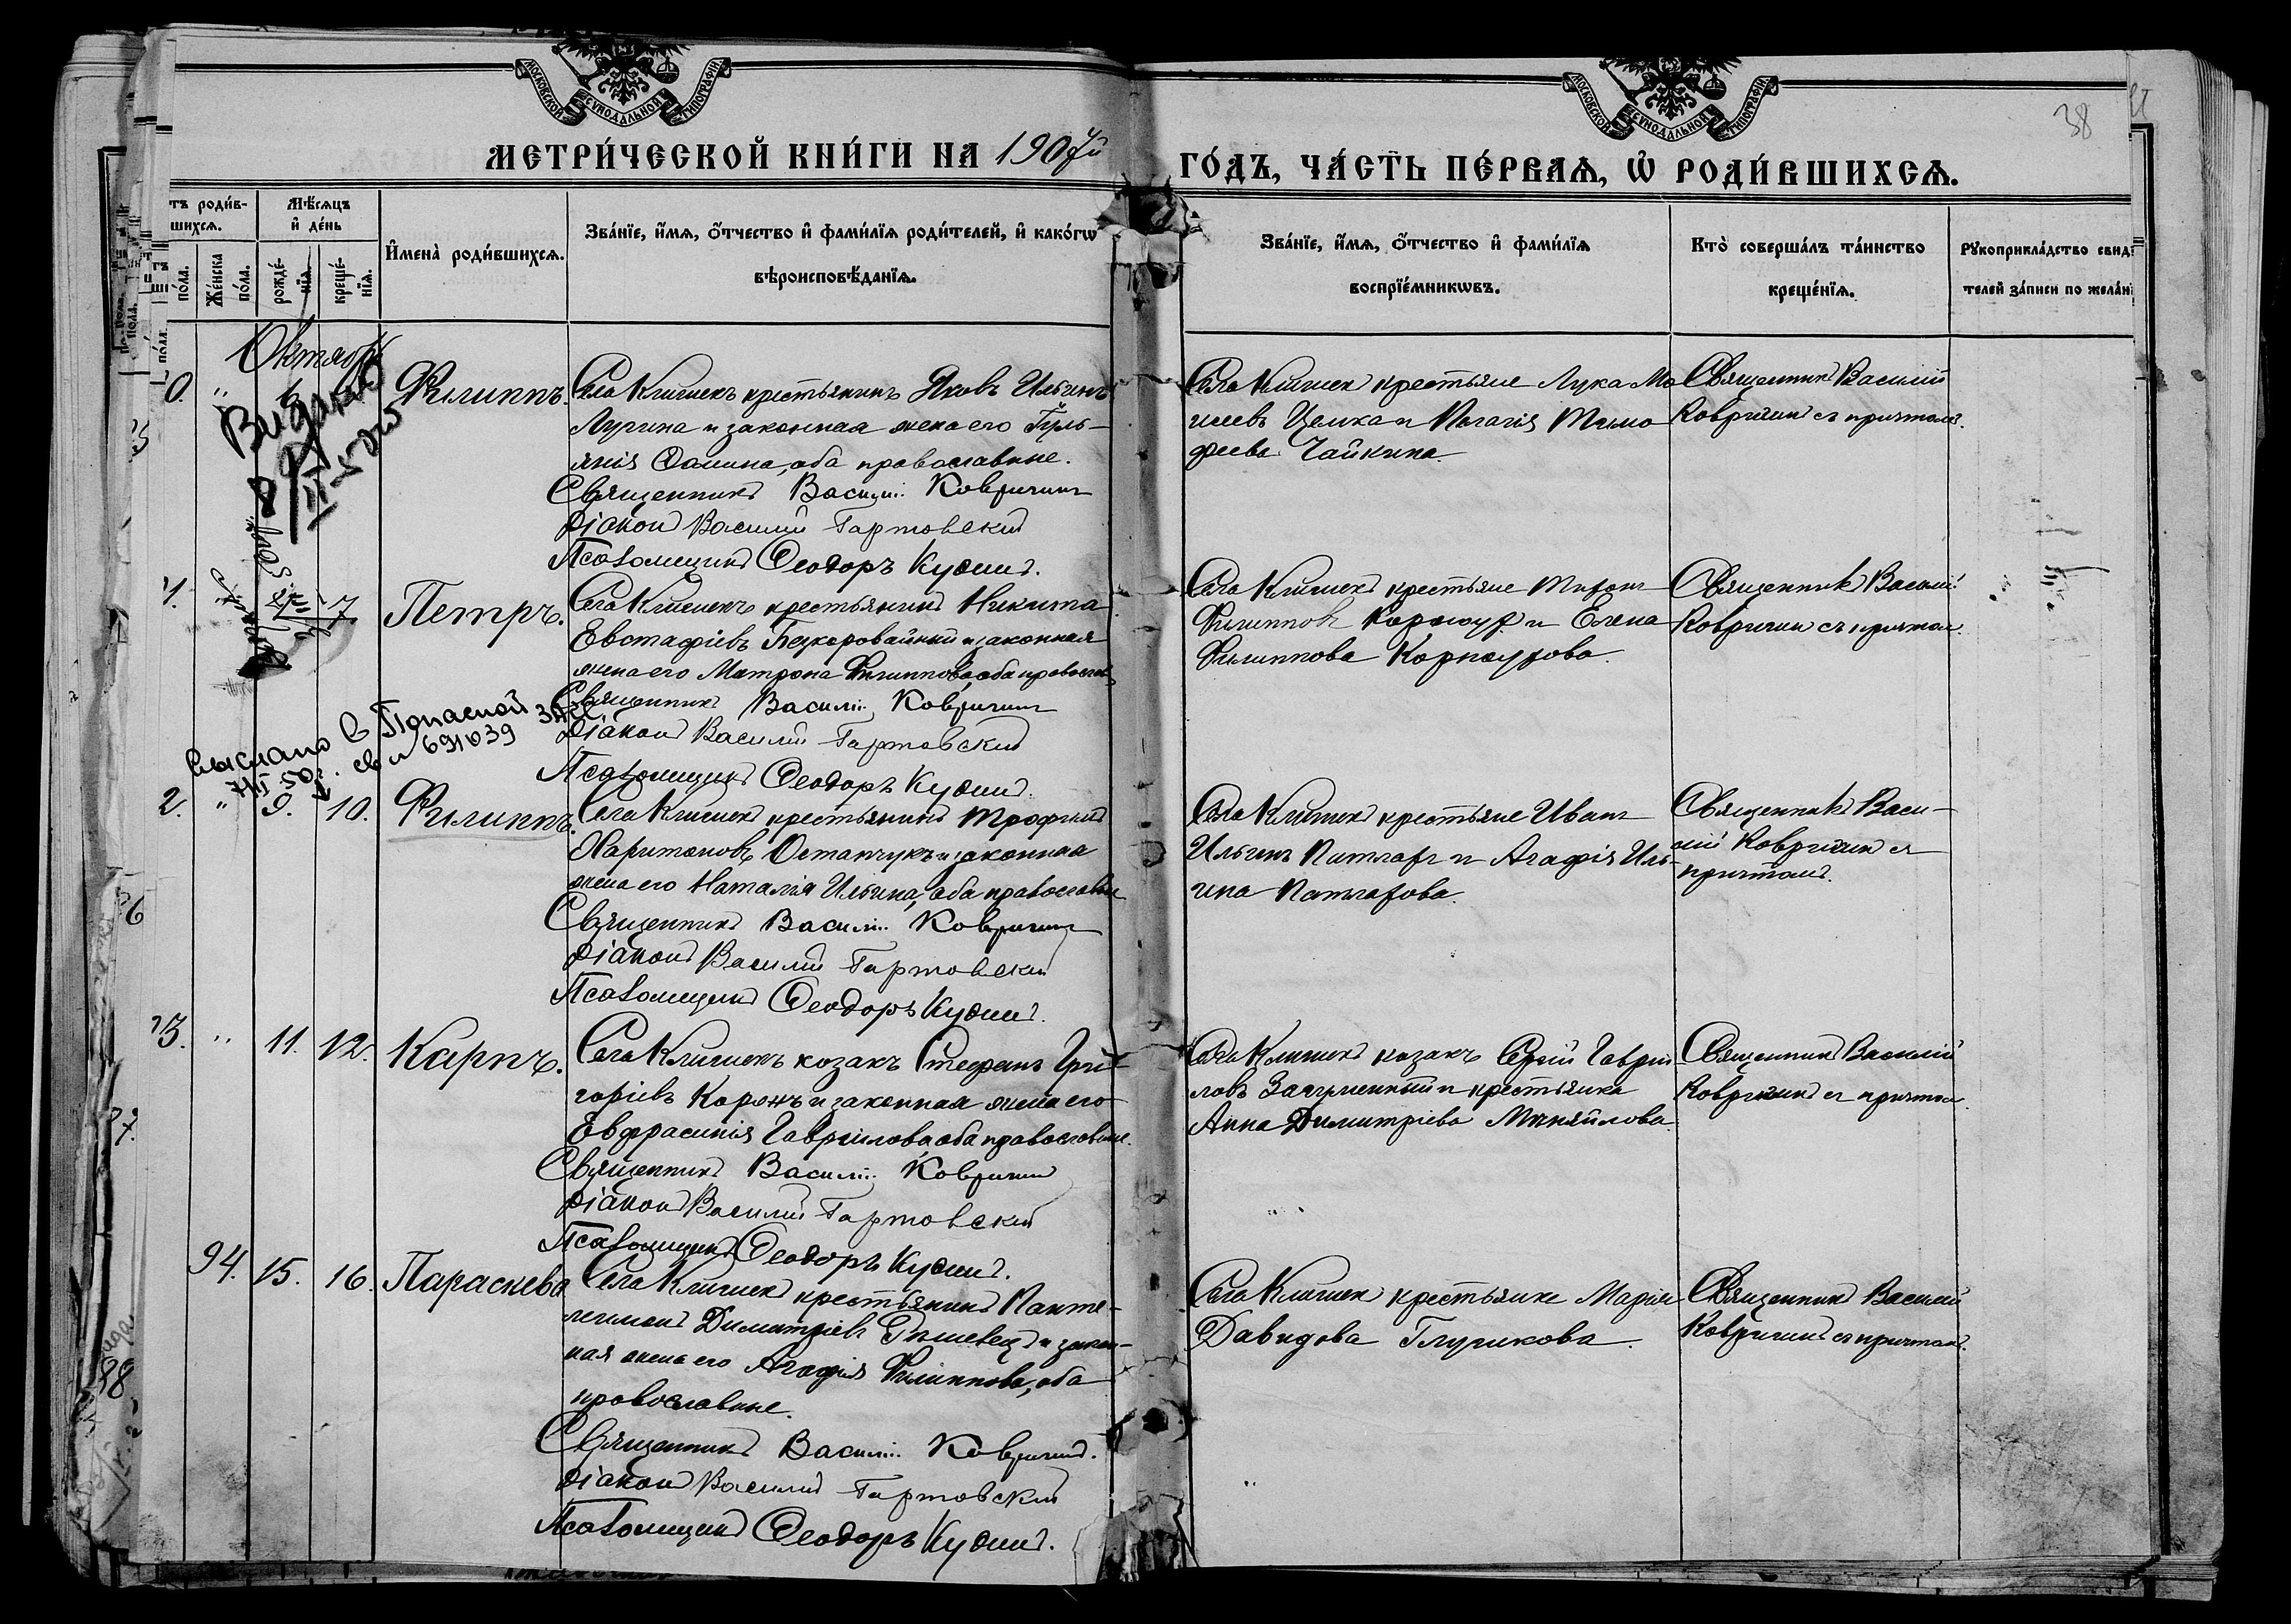 МОСКОВСКОЙ СѴНОДАЛЬНОЙ ТИПОГРАФІИ
МОСКОВСКОЙ СѴНОДАЛЬНОЙ ТИПОГРАФІИ
38
МЕТРИ́ЧЕСКОЙ КНИ́ГИ НА 1907й
ГО́ДЪ, ЧА́СТЬ ПЕ́РВАѦ, Ѡ РОДИ́ВШИХСѦ.
тъ роди́в-
шихсѧ.
Мѣ́сѧцъ
и҆ де́нь
по́ла.
Же́нска
по́ла.
рожде́-
нїѧ.
креще́-
нїѧ.
И҆мена̀ роди́вшихсѧ.
Зва́нїе, и҆́мѧ, ѻ҆́тчество и҆ фами́лїѧ роди́телей, и҆ како́гѡ
вѣроисповѣ́данїѧ.
Зва́нїе, и҆́мѧ, ѻ҆́тчество и҆ фами́лїѧ
воспрїе́мникѡвъ.
Кто̀ соверша́лъ та́инство
креще́нїѧ.
Рꙋкоприкла́дство свид
телей за́писи по жела́н
Октябрь
0. " 6
Филиппъ.
Села Клишекъ крестьянинъ Яковъ Ильинъ
Лугина и законная жена его Гуль-
янія Ѳомина, оба православные.
Священникъ Василій Ковригинъ
Діаконъ Василій Гартовскій
Псаломщикъ Ѳеодоръ Кудинъ.
Села Клишекъ крестьяне Лука Мо
исеевъ Цемка и Пелагія Тимо
феева Чайкина.
Священникъ Василій
Ковригинъ съ причтомъ.
1. 7
Петръ.
Села Клишекъ крестьянинъ Никита
Евстафіевъ Безкоровайный и законная
жена его Матрона Филиппова, оба православ
Священникъ Василій Ковригинъ
Діаконъ Василій Гартовскій
Псаломщикъ Ѳеодоръ Кудинъ.
Села Клишекъ крестьяне
Филипповъ и Елена
Филиппова Карпаузова.
Священникъ Василій
Ковригинъ съ причтом.
Выслано в Попасной ЗАГС
7/II 50г. св № 691039
2. " 9. 10.
Филиппъ.
Села Клишекъ крестьянинъ Трофимъ
Харитоновъ Остапчукъ и законная
жена его Наталія Ильина, оба православные
Священникъ Василій Ковригинъ
Діаконъ Василій Гартовскій
Псаломщикъ Ѳеодоръ Кудинъ.
Села Клишекъ крестьяне Иванъ
Ильинъ и Агафія Иль-
ина
Священникъ Васи-
лій Ковригинъ съ
причтомъ.
3. " 11. 12.
Карпъ.
Села Клишекъ козакъ Стефанъ Гри-
горіевъ Коржъ и законная жена его
Евфрасинія Гавриилова оба православные.
Священникъ Василій Ковригинъ
Діаконъ Василій Гартовскій
Псаломщикъ Ѳеодоръ Кудинъ.
Села Клишекъ козакъ Сергій Гаврии
ловъ и крестьянка
Анна Димитріева Миняйлова
Священникъ Василій
Ковригинъ съ причтом.
94. 15. 16.
Параскева
Села Клишекъ крестьянинъ Панте-
леимонъ Димитріевъ и закон-
ная жена его Агафія Филиппова, оба
православные.
Священникъ Василій Ковригинъ.
Діаконъ Василій Гартовскій
Псаломщикъ Ѳеодоръ Кудинъ.
Села Клишекъ крестьянка Марія
Давидова Глушкова.
Священникъ Василій
Ковригинъ съ причтом.